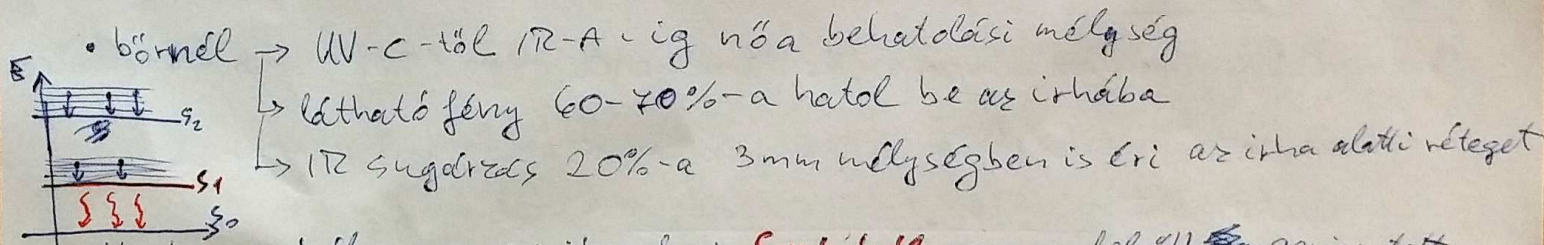 • bőrnél → UV-C-től IR-A-ig nő a behatolási mélység
→ látható fény 60-70%-a hatol be az irhába
→ IR sugárzás 20%-a 3mm mélységben is éri az irha alatti réteget
E
S2
S1
S0